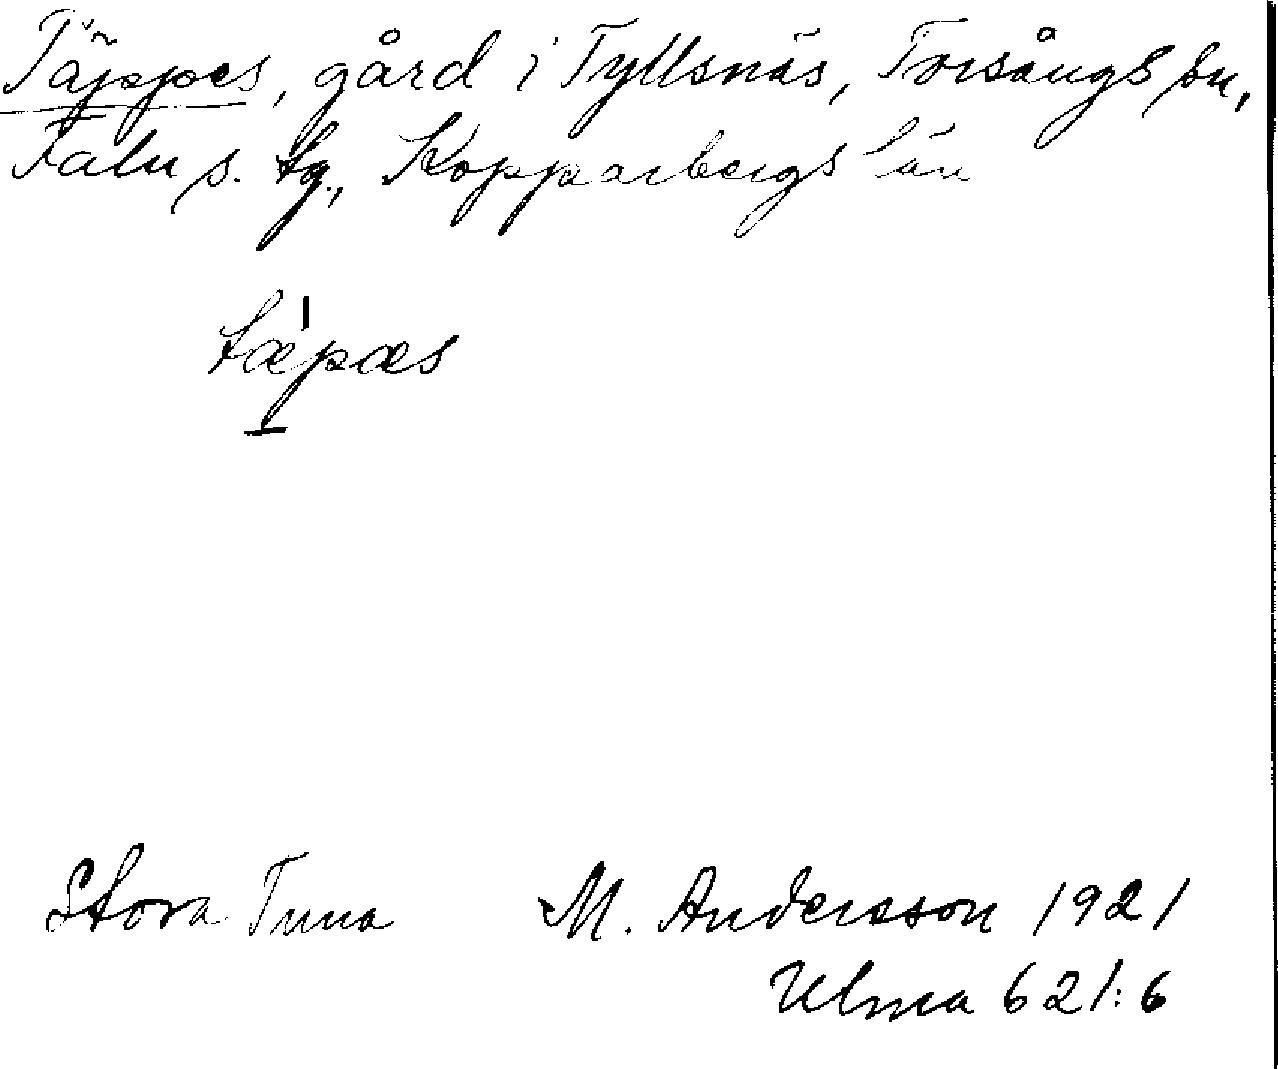 Täppes, gård i Tyllsnäs, Torsångs sn,
Falu s. tg., Kopparbergs län
tæpæs
Stora Tuna M. Andersson 1921
Ulma 621:6